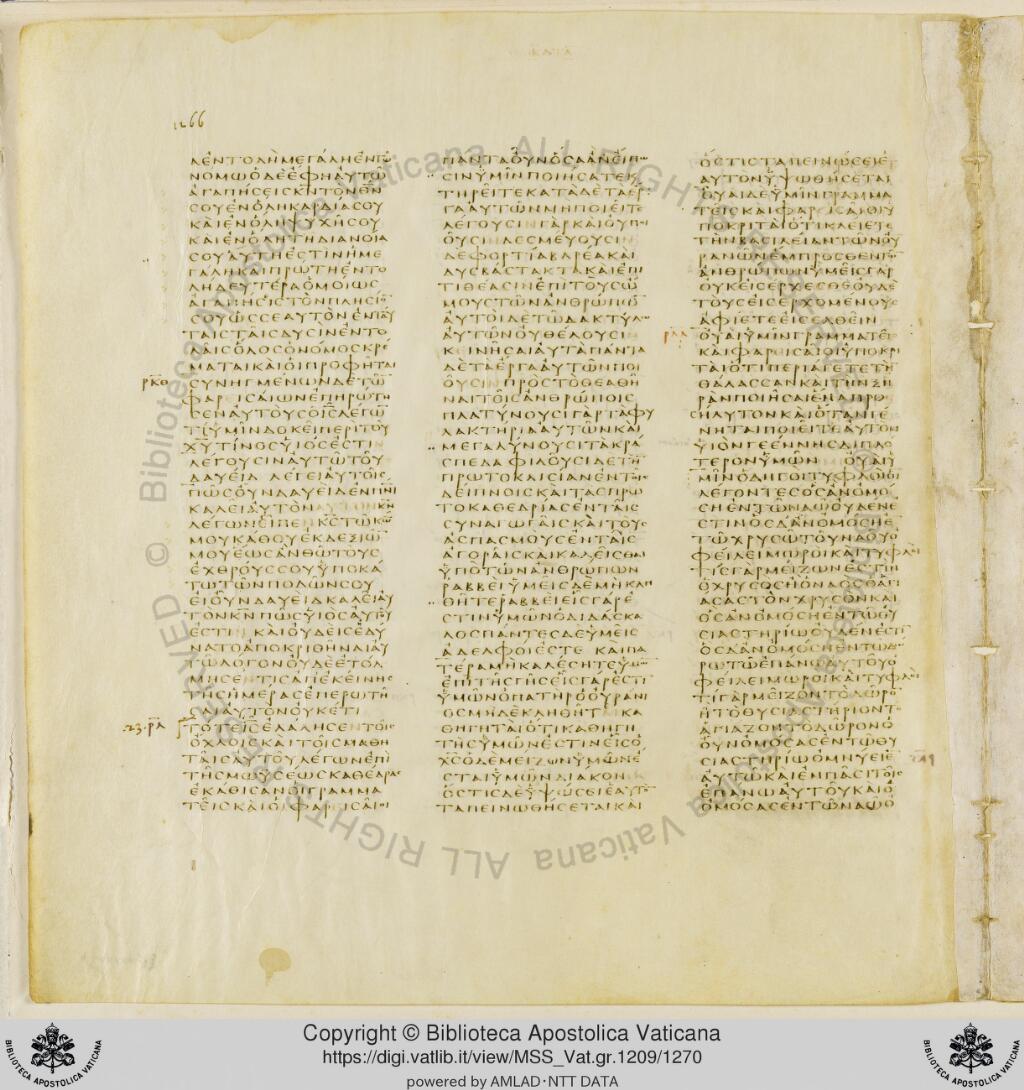 1266
ΛΕΝΤΟΛΗΜΕΓΑΛΗΕΝΤΩ
ΝΟΜΩΟΔΕΕΦΗΑΥΤΩ
ΑΓΑΠΗΣΕΙΣΚΝΤΟΝΘΝ
ΣΟΥΕΝΟΛΗΚΑΡΔΙΑΣΟΥ
ΚΑΙΕΝΟΛΗΨΥΧΗΣΟΥ
ΚΑΙΕΝΟΛΗΤΗΔΙΑΝΟΙΑ
ΣΟΥΑΥΤΗΕΣΤΙΝΗΜΕ
ΓΑΛΗΚΑΙΠΡΩΤΗΕΝΤΟ
ΛΗΔΕΥΤΕΡΑΟΜΟΙΩΣ
ΑΓΑΠΗΣΕΙΣΤΟΝΠΛΗΣΙΟ
ΣΟΥΩΣΣΕΑΥΤΟΝΕΝΤΑΥ
ΤΑΙΣΤΑΙΣΔΥΣΙΝΕΝΤΟ
ΛΑΙΣΟΛΟΣΟΝΟΜΟΣΚΡΕ
ΜΑΤΑΙΚΑΙΟΙΠΡΟΦΗΤΑΙ
ΡΚΘ ΣΥΝΗΓΜΕΝΩΝΔΕΤΩ
ΦΑΡΕΙΣΑΙΩΝΕΠΗΡΩΤΗ
ΣΕΝΑΥΤΟΥΣΟΙΣΛΕΓΩ
ΤΙΥΜΙΝΔΟΚΕΙΠΕΡΙΤΟΥ
ΧΥΤΙΝΟΣΥΙΟΣΕΣΤΙΝ
ΛΕΓΟΥΣΙΝΑΥΤΩΤΟΥ
ΔΑΥΕΙΔ ΛΕΓΕΙΑΥΤΟΙΣ
ΠΩΣΟΥΝΔΑΥΕΙΔΕΝΠΝΙ
ΚΑΛΕΙΑΥΤΟΝΑΥΤΟΝΚΝ
ΛΕΓΩΝΕΙΠΕΝΚΣΤΩΚΩ
ΜΟΥΚΑΘΟΥΕΚΔΕΞΙΩ
ΜΟΥΕΩΣΑΝΘΩΤΟΥΣ
ΕΧΘΡΟΥΣΣΟΥΥΠΟΚΑ
ΤΩΤΩΝΠΟΔΩΝΣΟΥ
ΕΙΟΥΝΔΑΥΕΙΔΚΑΛΕΙΑΥ
ΤΟΝΚΝΠΩΣΥΙΟΣΑΥΤΟΥ
ΕΣΤΙΝ ΚΑΙΟΥΔΕΙΣΕΔΥ
ΝΑΤΟΑΠΟΚΡΙΘΗΝΑΙΑΥ
ΤΩΛΟΓΟΝΟΥΔΕΕΤΟΛ
ΜΗΣΕΝΤΙΣΑΠΕΚΕΙΝΗΣ
ΤΗΣΗΜΕΡΑΣΕΠΕΡΩΤΗ
ΣΑΙΑΥΤΟΝΟΥΚΕΤΙ
23. ΡΛ ΤΟΤΕΙΣΕΛΑΛΗΣΕΝΤΟΙΣ
ΟΧΛΟΙΣΚΑΙΤΟΙΣΜΑΘΗ
ΤΑΙΣΑΥΤΟΥΛΕΓΩΝΕΠΙ
ΤΗΣΜΩΥΣΕΩΣΚΑΘΕΔΡΑΣ
ΕΚΑΘΙΣΑΝΟΙΓΡΑΜΜΑ
ΤΕΙΣΚΑΙΟΙΦΑΡΕΙΣΑΙΟΙ
ΠΑΝΤΑΟΥΝΟΣΑΑΝΕΙΠΩ
ΣΙΝΥΜΙΝΠΟΙΗΣΑΤΕΚΑΙ
ΤΗΡΕΙΤΕΚΑΤΑΔΕΤΑΕΡ
ΓΑΑΥΤΩΝΜΗΠΟΙΕΙΤΕ
ΛΕΓΟΥΣΙΝΓΑΡΚΑΙΟΥΠΟΙ
ΟΥΣΙΝΔΕΣΜΕΥΟΥΣΙΝ
ΔΕΦΟΡΤΙΑΒΑΡΕΑΚΑΙ
ΔΥΣΒΑΣΤΑΚΤΑΚΑΙΕΠΙ
ΤΙΘΕΑΣΙΝΕΠΙΤΟΥΣΩ
ΜΟΥΣΤΩΝΑΝΘΡΩΠΩ
ΑΥΤΟΙΔΕΤΩΔΑΚΤΥΛΩ
ΑΥΤΩΝΟΥΘΕΛΟΥΣΙΝ
ΚΕΙΝΗΣΑΙΑΥΤΑΠΑΝΤΑ
ΔΕΤΑΕΡΓΑΑΥΤΩΝΠΟΙ
ΟΥΣΙΝΠΡΟΣΤΟΘΕΑΘΗ
ΝΑΙΤΟΙΣΑΝΘΡΩΠΟΙΣ
ΠΛΑΤΥΝΟΥΣΙΓΑΡΤΑΦΥ
ΛΑΚΤΗΡΙΑΑΥΤΩΝΚΑΙ
ΜΕΓΑΛΥΝΟΥΣΙΤΑΚΡΑ
ΣΠΕΔΑΦΙΛΟΥΣΙΔΕΤΗ
ΠΡΩΤΟΚΛΙΣΙΑΝΕΝΤΟΙΣ
ΔΕΙΠΝΟΙΣΚΑΙΤΑΣΠΡΩ
ΤΟΚΑΘΕΔΡΙΑΣΕΝΤΑΙΣ
ΣΥΝΑΓΩΓΑΙΣΚΑΙΤΟΥΣ
ΑΣΠΑΣΜΟΥΣΕΝΤΑΙΣ
ΑΓΟΡΑΙΣΚΑΙΚΑΛΕΙΣΘΑΙ
ΥΠΟΤΩΝΑΝΘΡΩΠΩΝ
ΡΑΒΒΕΙΥΜΕΙΣΔΕΜΗΚΛΗ
ΘΗΤΕΡΑΒΒΕΙΕΙΣΓΑΡΕ
ΣΤΙΝΥΜΩΝΟΔΙΔΑΣΚΑ
ΛΟΣΠΑΝΤΕΣΔΕΥΜΕΙΣ
ΑΔΕΛΦΟΙΕΣΤΕ ΚΑΙΠΑ
ΤΕΡΑΜΗΚΑΛΕΣΗΤΕΥΜΩ
ΕΠΙΤΗΣΓΗΣΕΙΣΓΑΡΕΣΤΙ
ΥΜΩΝΟΠΑΤΗΡΟΟΥΡΑΝΙ
ΟΣΜΗΔΕΚΛΗΘΗΤΕΚΑ
ΘΗΓΗΤΑΙΟΤΙΚΑΘΗΓΗ
ΤΗΣΥΜΩΝΕΣΤΙΝΕΙΣΟ
ΧΣΟΔΕΜΕΙΖΩΝΥΜΩΝΕ
ΣΤΑΙΥΜΩΝΔΙΑΚΟΝ
ΟΣΤΙΣΔΕΥΨΩΣΕΙΕΑΥΤ
ΤΑΠΕΙΝΩΘΗΣΕΤΑΙΚΑΙ
ΟΣΤΙΣΤΑΠΕΙΝΩΣΕΙΕ
ΑΥΤΟΝΥΨΩΘΗΣΕΤΑΙ
ΟΥΑΙΔΕΥΜΙΝΓΡΑΜΜΑ
ΤΕΙΣΚΑΙΦΑΡΕΙΣΑΙΟΙΥ
ΠΟΚΡΙΤΑΙΟΤΙΚΛΕΙΕΤΕ
ΤΗΝΒΑΣΙΛΕΙΑΝΤΩΝΟΥ
ΡΑΝΩΝΕΜΠΡΟΣΘΕΝΤΩ
ΑΝΘΡΩΠΩΝΥΜΕΙΣΓΑΡ
ΟΥΚΕΙΣΕΡΧΕΣΘΕΟΥΔΕ
ΤΟΥΣΕΙΣΕΡΧΟΜΕΝΟΥΣ
ΑΦΙΕΤΕΕΙΣΕΛΘΕΙΝ
ΡΛΑ ΟΥΑΙΥΜΙΝΓΡΑΜΜΑΤΕΙΣ
ΚΑΙΦΑΡΕΙΣΑΙΟΙΥΠΟΚΡΙ
ΤΑΙΟΤΙΠΕΡΙΑΓΕΤΕΤΗ
ΘΑΛΑΣΣΑΝΚΑΙΤΗΝΞΗ
ΡΑΝΠΟΙΗΣΑΙΕΝΑΠΡΟ
ΣΗΛΥΤΟΝΚΑΙΟΤΑΝΓΕ
ΝΗΤΑΙΠΟΙΕΙΤΕΑΥΤΟΝ
ΥΙΟΝΓΕΕΝΝΗΣΔΙΠΛΟ
ΤΕΡΟΝΥΜΩΝ ΟΥΑΙΥ
ΜΙΝΟΔΗΓΟΙΤΥΦΛΟΙΟΙ
ΛΕΓΟΝΤΕΣΟΣΑΝΟΜΟ
ΣΗΕΝΤΩΝΑΩΟΥΔΕΝΕ
ΣΤΙΝΟΣΔΑΝΟΜΟΣΗΕ
ΤΩΧΡΥΣΩΤΟΥΝΑΟΥΟ
ΦΕΙΛΕΙΜΩΡΟΙΚΑΙΤΥΦΛΟΙ
ΤΙΣΓΑΡΜΕΙΖΩΝΕΣΤΙΝ
ΟΧΡΥΣΟΣΗΟΝΑΟΣΟΑΓΙ
ΑΣΑΣΤΟΝΧΡΥΣΟΝΚΑΙ
ΟΣΑΝΟΜΟΣΗΕΝΤΩΘΥ
ΣΙΑΣΤΗΡΙΩΟΥΔΕΝΕΣΤΙ
ΟΣΔΑΝΟΜΟΣΗΕΝΤΩΔΩ
ΡΩΤΩΕΠΑΝΩΑΥΤΟΥΟ
ΦΕΙΛΕΙΜΩΡΟΙΚΑΙΤΥΦΛΟΙ
ΤΙΓΑΡΜΕΙΖΟΝΤΟΔΩΡΟ
ΗΤΟΘΥΣΙΑΣΤΗΡΙΟΝΤΟ
ΑΓΙΑΖΟΝΤΟΔΩΡΟΝΟ
ΟΥΝΟΜΟΣΑΣΕΝΤΩΘΥ
ΣΙΑΣΤΗΡΙΩΟΜΝΥΕΙΕ
ΑΥΤΩΚΑΙΕΜΠΑΣΙΤΟΙΣ
ΕΠΑΝΩΑΥΤΟΥΚΑΙΟ
ΟΜΟΣΑΣΕΝΤΩΝΑΩΟ
© Biblioteca Apostolica Vaticana ALL RIGHTS RESERVED
Copyright © Biblioteca Apostolica Vaticana
https://digi.vatlib.it/view/MSS_Vat.gr.1209/1270
powered by AMLAD·NTT DATA
BIBLIOTECA APOSTOLICA VATICANA
BIBLIOTECA APOSTOLICA VATICANA